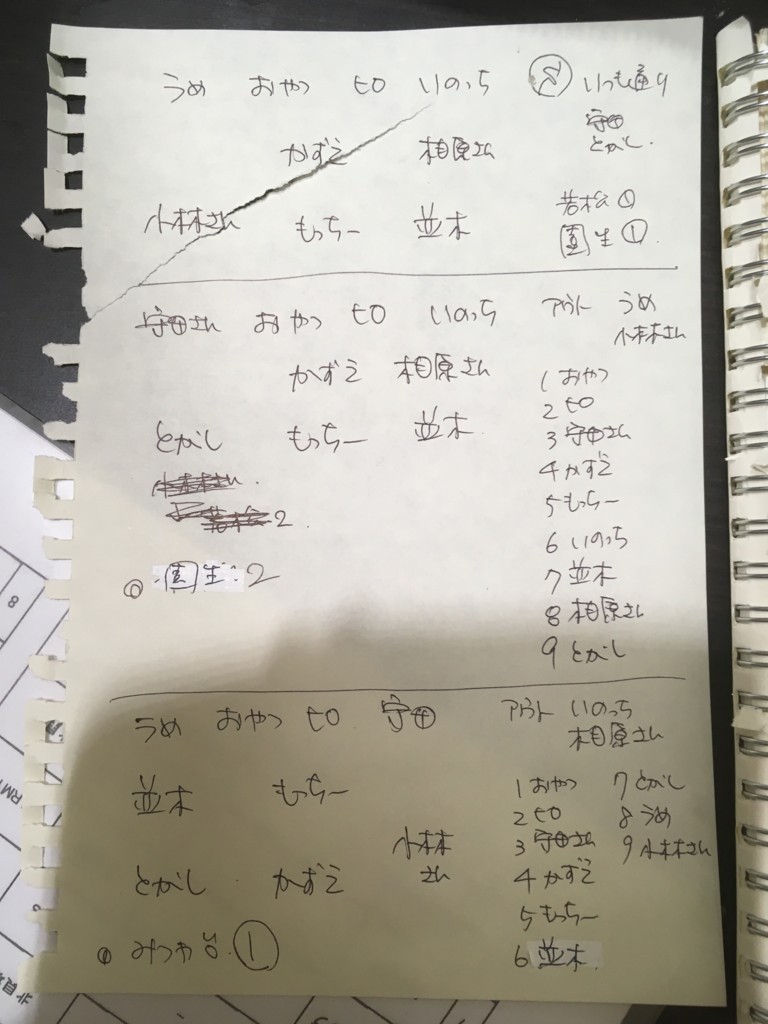 うめ おやつ ヒロ いのっち
いつも通り
守田
とがし
かずえ 相原さん
小林さん もっちー 並木
若松①
園生①
守田さん おやつ ヒロ いのっち
アウト うめ
小林さん
かずえ 相原さん
とがし もっちー 並木
1 おやつ
2 ヒロ
3 守田さん
4 かずえ
5 もっちー
6 いのっち
7 並木
8 相原さん
9 とがし
園生 2
うめ おやつ ヒロ 守田
アウト いのっち
相原さん
並木 もっちー
小林
さん
とがし かずえ
1 おやつ
2 ヒロ
3 守田さん
4 かずえ
5 もっちー
6 並木
7 とがし
8 うめ
9 小林さん
みつわ台 ①
RM
8